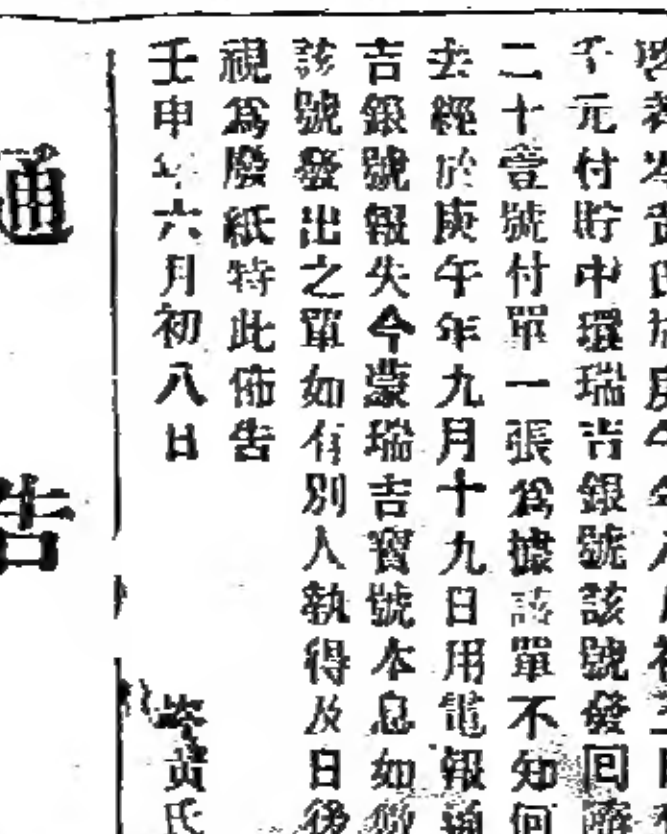 啓者岑黃氏於庚午年八月初三日
千元付貯中環瑞吉銀號該號發回
二十壹號付單一張爲據該單不知何
去經於庚午年九月十九日用電報通
吉銀號報失今蒙瑞吉寶號本息如
該號發出之單如有別人執得及日後
視爲廢紙特此佈告
壬申年六月初八日
岑黃氏
通告